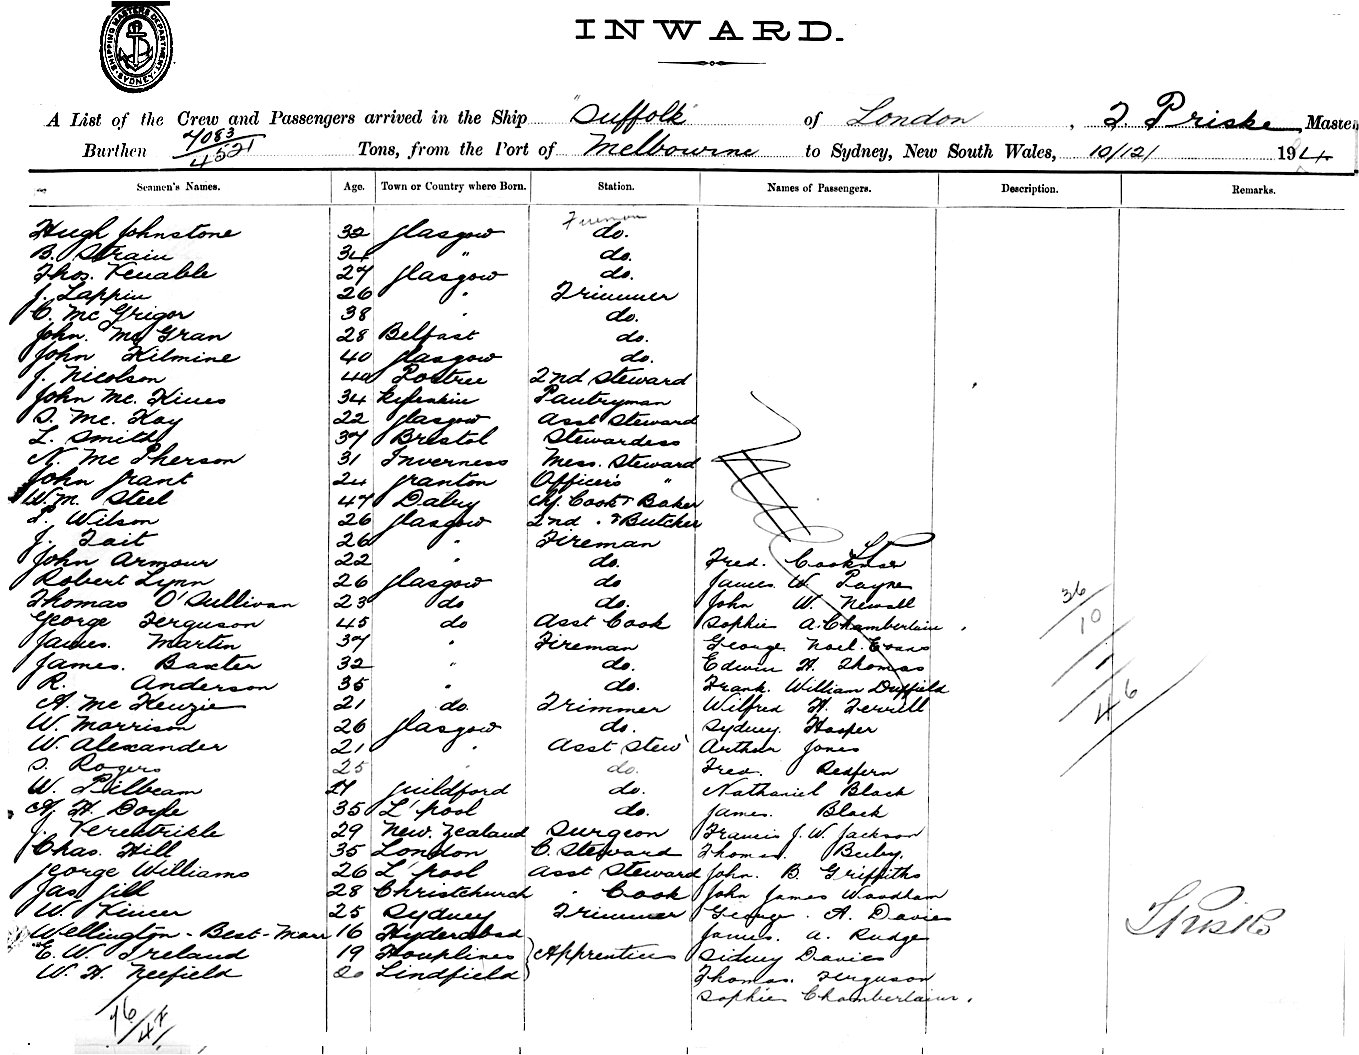 SHIPPING MASTERS DEPARTMENT SYDNEY
INWARD.
A List of the Crew and Passengers arrived in the Ship "Suffolk" of London, T. Priske, Master
Burthen 4083/4521 Tons, from the Port of Melbourne to Sydney, New South Wales, 10/12/ 194
Seamen's Names. Age. Town or Country where Born. Station. Names of Passengers. Description. Remarks.
Fireman
Hugh Johnstone 32 Glasgow do.
B. Strain 34 " do.
Thos. Venable 27 Glasgow do.
J. Lappin 26 " Trimmer
C. McGrigor 38 " do.
John McGran 28 Belfast do.
John Kilmine 40 Glasgow do.
J. Nicolson 40 Portree 2nd Steward
John Mc. 34 Pantryman
S. Mc. Kay 22 Glasgow Asst Steward
L. Smith 37 Bristol Stewardess
N. McPherson 31 Inverness Mess. Steward
John Grant 24 Granton Officer's "
W.M. Steel 47 Dalry Cook & Baker
P. Wilson 26 Glasgow 2nd " & Butcher
J. Tait 26 " Fireman
John Armour 22 " do. Fred.
Robert Lynn 26 Glasgow do James W Payne
Thomas O'Sullivan 23 do do. John W. Newall
George Ferguson 45 do Asst Cook Sophie A. Chamberlain.
James Martin 37 " Fireman George Noel Evans
James. Baxter 32 " do. Edwin H. Thomas
R. Anderson 35 " do. Frank William Duffield
A. McKenzie 21 do. Trimmer Wilfred H. Ferrill
W. Morrison 26 Glasgow do. Sydney Hooper
W. Alexander 21 " Asst Stew' Arthur Jones
S. Rogers 25 " do. Fred. Redfern
W. Pilbeam Guildford do. Nathaniel Black
A. H. Doyle 35 L'pool do. James. Black
J. 29 New. Zealand Surgeon Francis J. W. Jackson
Chas. Hill 35 London C. Steward Thomas.
George Williams 26 L'pool Asst Steward John. B. Griffiths
Jas Gill 28 Christchurch " Cook John James Woodham
W. 25 Sydney Trimmer George. A. Davies
Wellington-Best- 16 Hyderabad James. A. Rudge
E. W. Ireland 19 Houplines Apprentices Sidney Davies
W. H. Neefield 20 Lindfield Thomas. Ferguson
Sophie Chamberlain.
36
10
46
T Priske